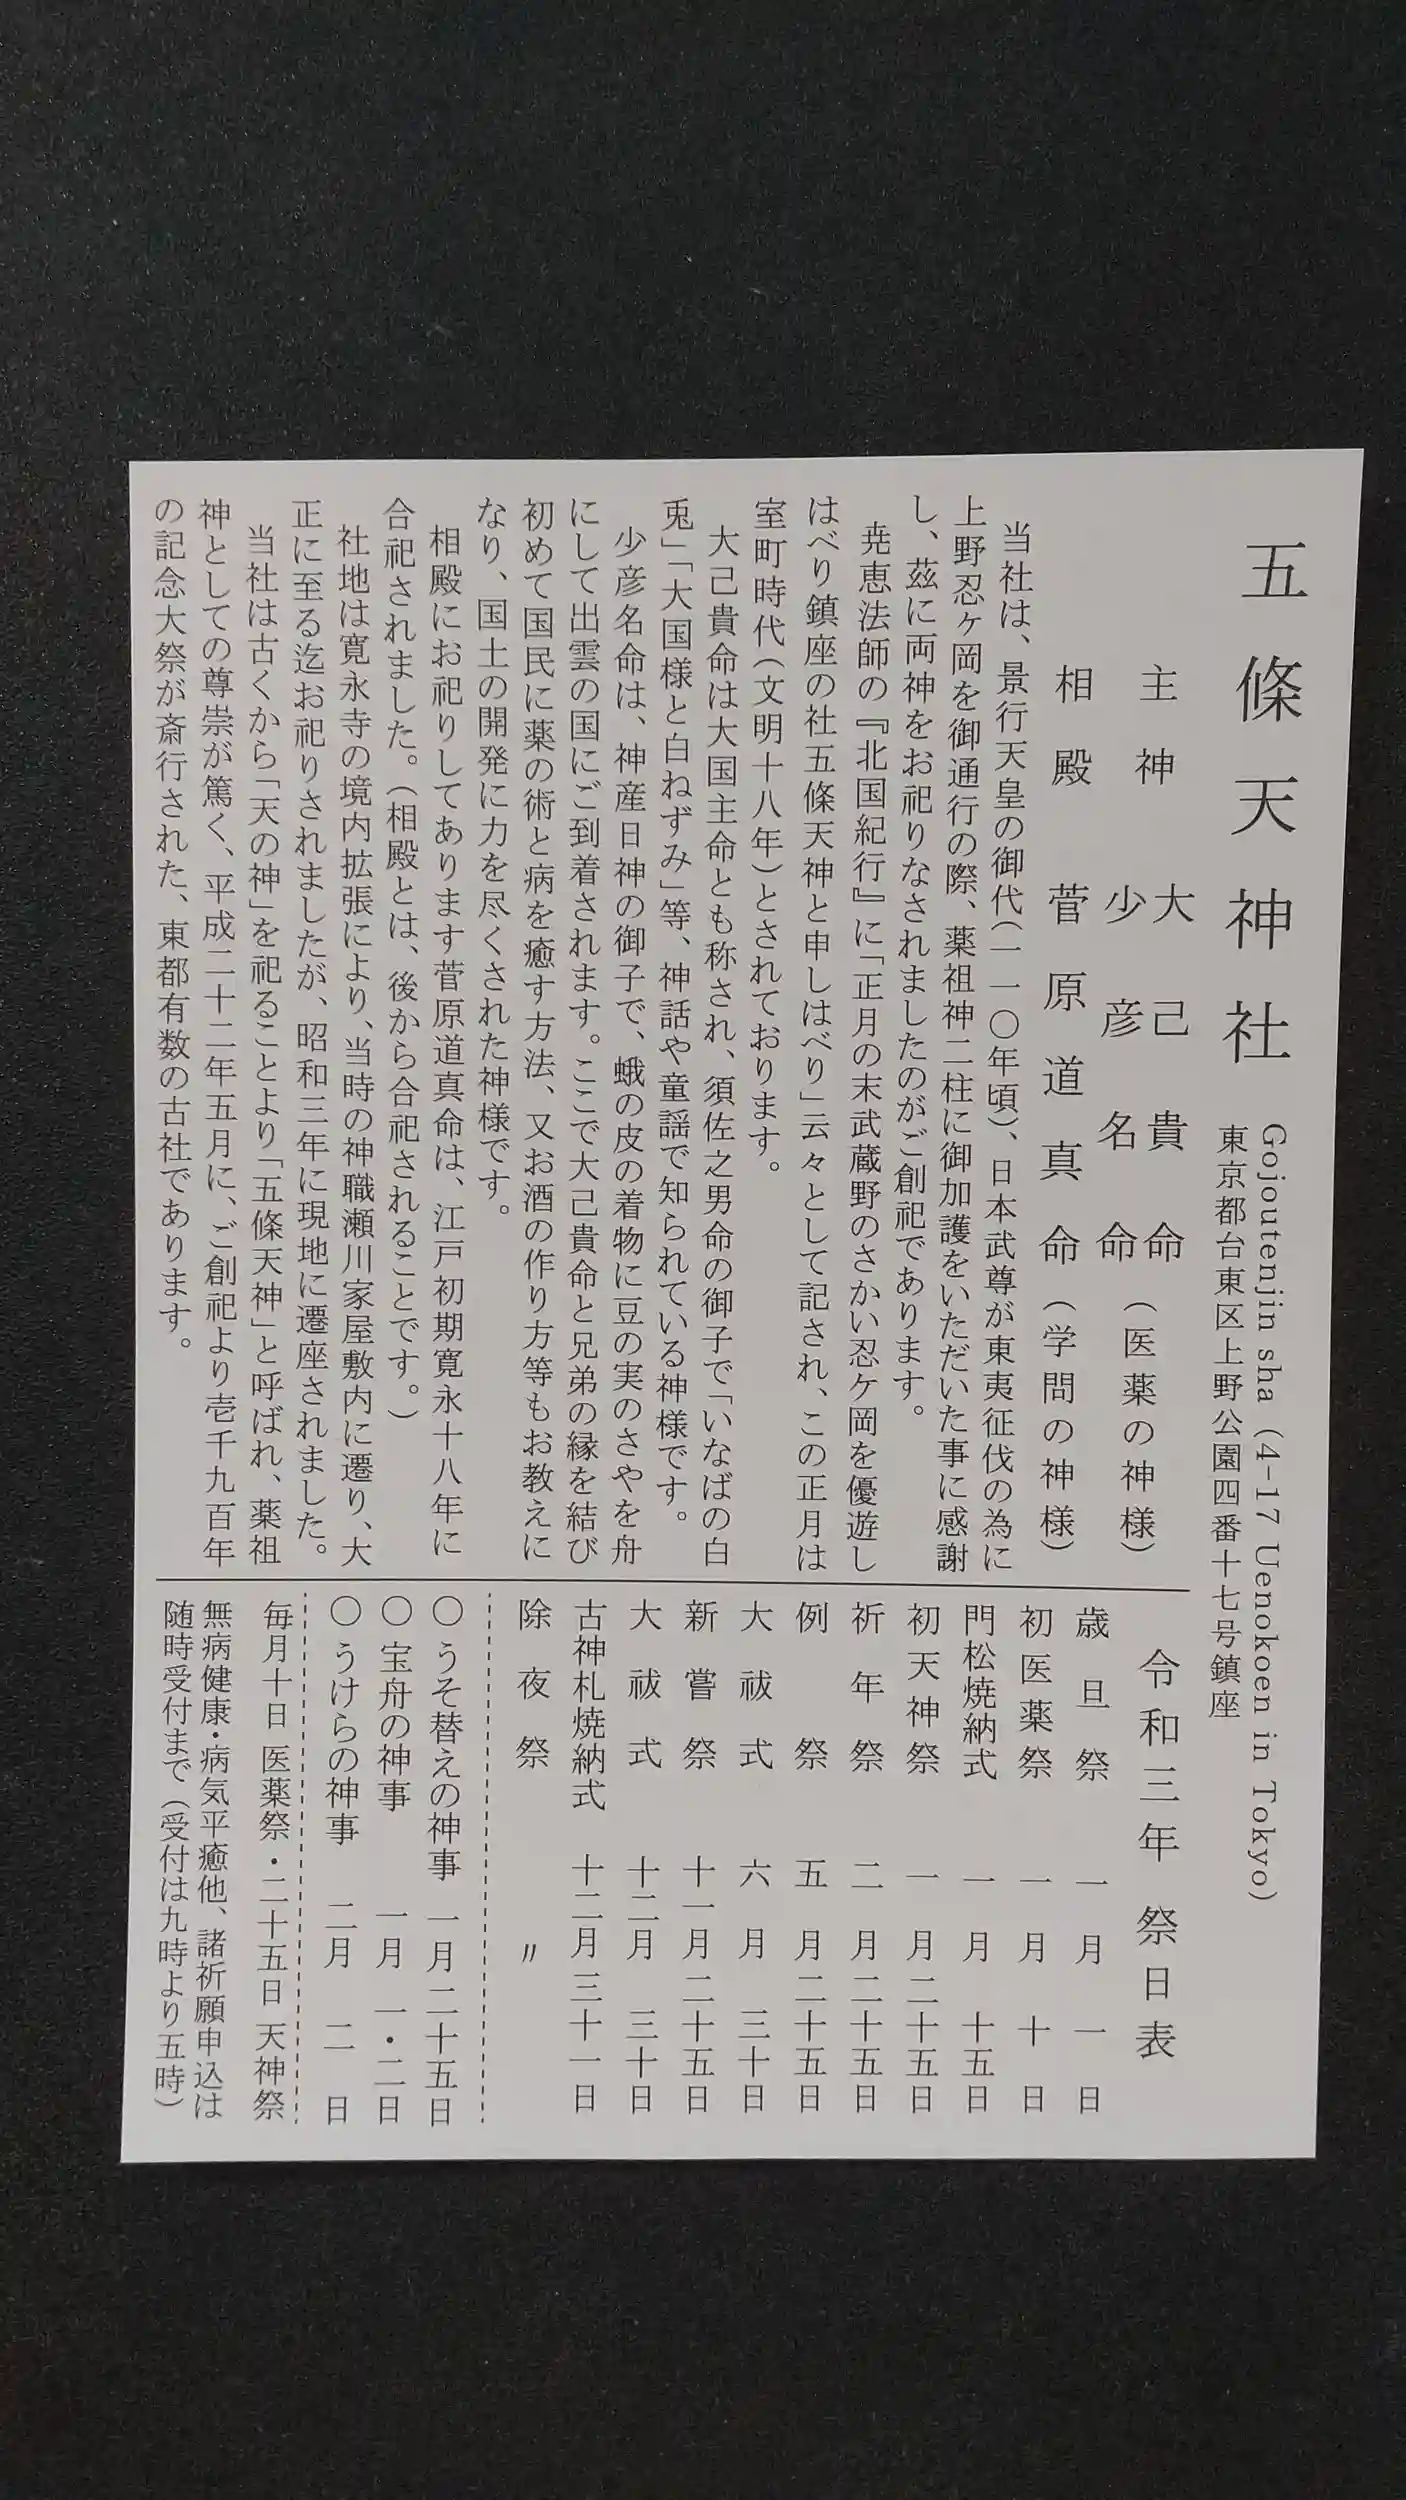 五條天神社
Gojoutenjin sha (4-17 Uenokoen in Tokyo)
東京都台東区上野公園四番十七号鎮座
主神 大己貴命
少彦名命 (医薬の神様)
相殿 菅原道真命 (学問の神様)
当社は、景行天皇の御代(一一〇年頃)、日本武尊が東夷征伐の為に
上野忍ヶ岡を御通行の際、薬祖神二柱に御加護をいただいた事に感謝
し、茲に両神をお祀りなされましたのがご創祀であります。
尭恵法師の『北国紀行』に「正月の末武蔵野のさかい忍ケ岡を優遊し
はべり鎮座の社五條天神と申しはべり」云々として記され、この正月は
室町時代(文明十八年)とされております。
大己貴命は大国主命とも称され、須佐之男命の御子で「いなばの白
兎」「大国様と白ねずみ」等、神話や童謡で知られている神様です。
少彦名命は、神産日神の御子で、蛾の皮の着物に豆の実のさやを舟
にして出雲の国にご到着されます。ここで大己貴命と兄弟の縁を結び
初めて国民に薬の術と病を癒す方法、又お酒の作り方等もお教えに
なり、国土の開発に力を尽くされた神様です。
相殿にお祀りしてあります菅原道真命は、江戸初期寛永十八年に
合祀されました。(相殿とは、後から合祀されることです。)
社地は寛永寺の境内拡張により、当時の神職瀬川家屋敷内に遷り、大
正に至る迄お祀りされましたが、昭和三年に現地に遷座されました。
当社は古くから「天の神」を祀ることより「五條天神」と呼ばれ、薬祖
神としての尊崇が篤く、平成二十二年五月に、ご創祀より壱千九百年
の記念大祭が斎行された、東都有数の古社であります。
令和三年 祭日表
歳旦祭 一月 一日
初医薬祭 一月 十日
門松焼納式 一月 十五日
初天神祭 一月二十五日
祈年祭 二月二十五日
例祭 五月二十五日
大祓式 六月 三十日
新嘗祭 十一月二十五日
大祓式 十二月 三十日
古神札焼納式 十二月三十一日
除夜祭 〃
〇うそ替えの神事 一月二十五日
〇宝舟の神事 一月 一・二日
〇うけらの神事 二月 二日
毎月十日 医薬祭・二十五日 天神祭
無病健康・病気平癒他、諸祈願申込は
随時受付まで(受付は九時より五時)